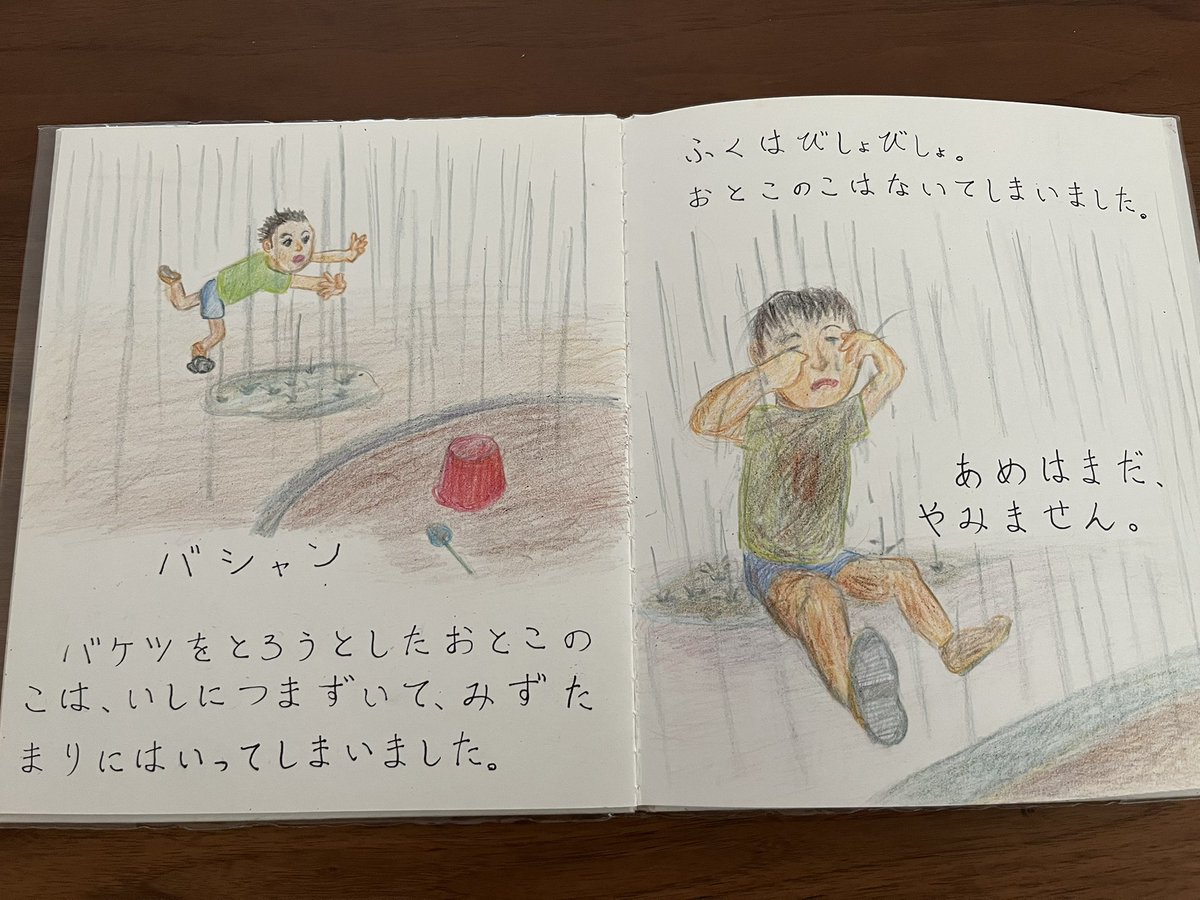 バシャン
バケツをとろうとしたおとこの
こは、いしにつまずいて、みずた
まりにはいってしまいました。
ふくはびしょびしょ。
おとこのこはないてしまいました。
あめはまだ、
やみません。